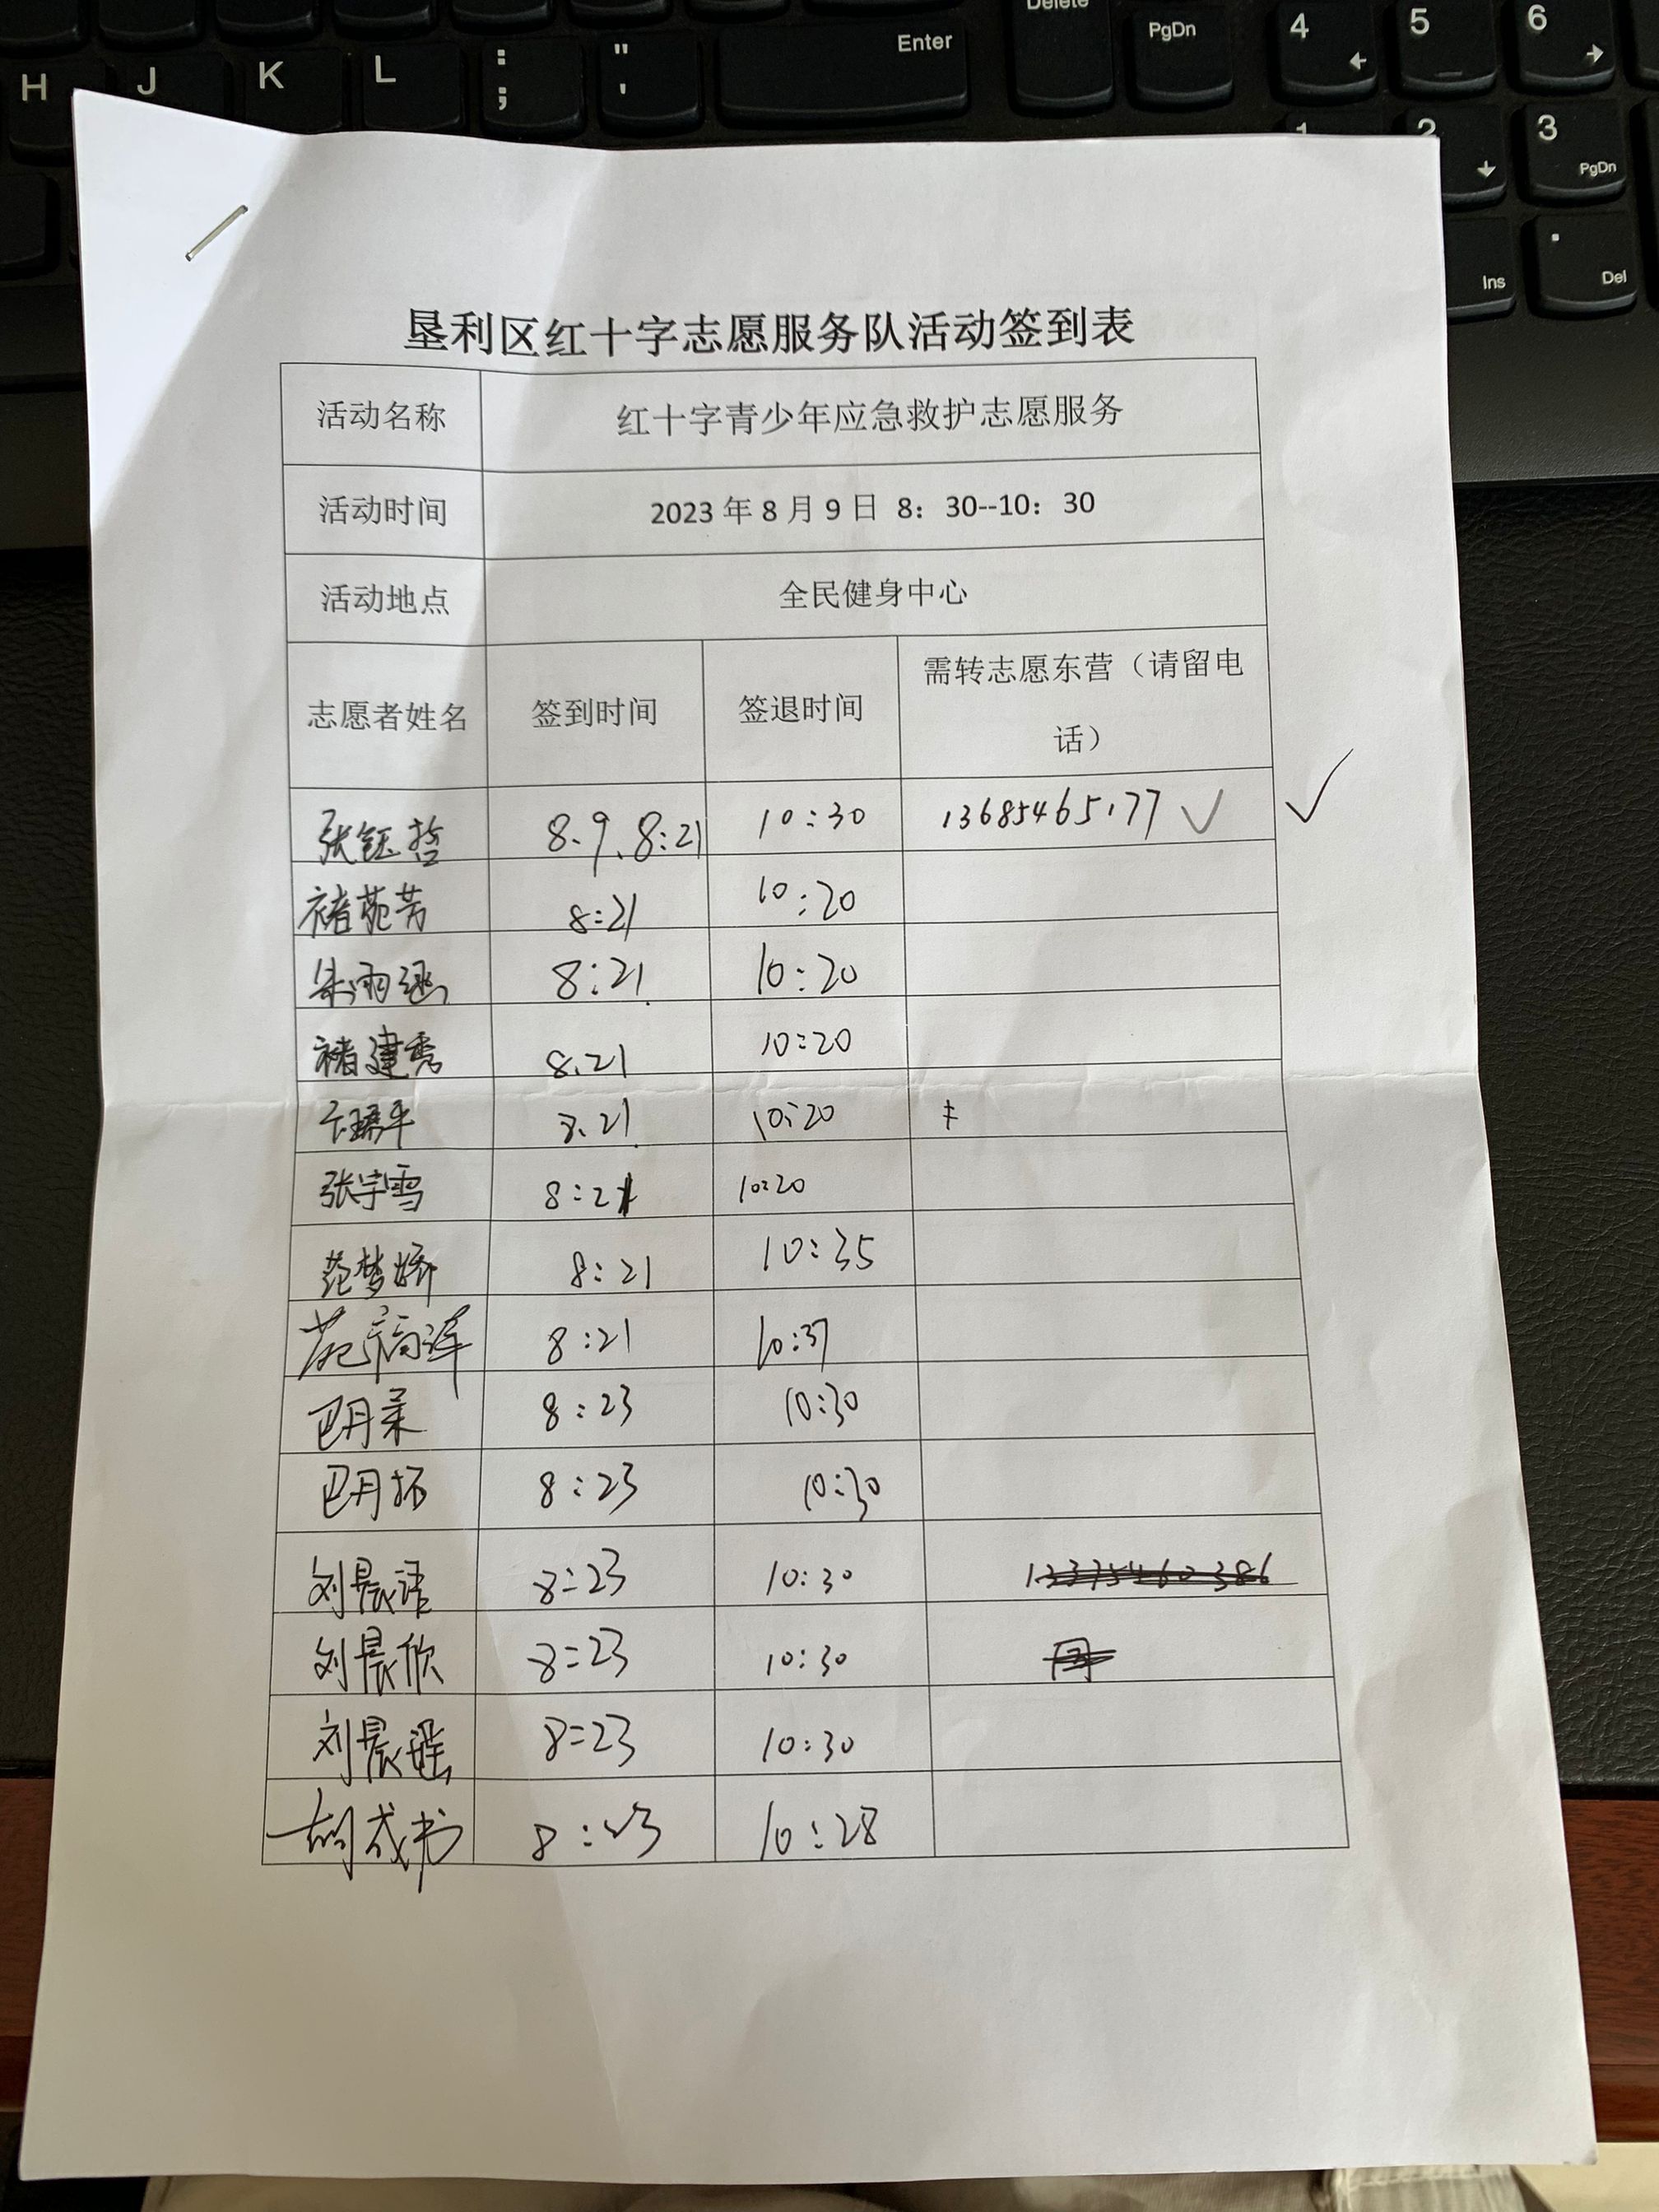 Delete
PgDn
4
5
6
H
J
K
L
:
;
"
'
Enter
1
2
3
PgDn
Ins
.
Del
垦利区红十字志愿服务队活动签到表
活动名称 红十字青少年应急救护志愿服务
活动时间 2023 年 8 月 9 日 8：30--10：30
活动地点 全民健身中心
志愿者姓名 签到时间 签退时间 需转志愿东营（请留电
话）
张钰哲 8.9、8:21 10:30 13685465177 ✓ ✓
褚苑芳 8:21 10:20
朱雨涵 8:21 10:20
褚建秀 8.21 10:20
8.21 10:20
张宇雪 8:21 10:20
范梦娇 8:21 10:35
苑福洋 8:21 10:37
巴月 8:23 10:30
巴月 8:23 10:30
刘晨语 8:23 10:30
刘晨欣 8:23 10:30
刘晨瑶 8:23 10:30
胡成书 8:23 10:28